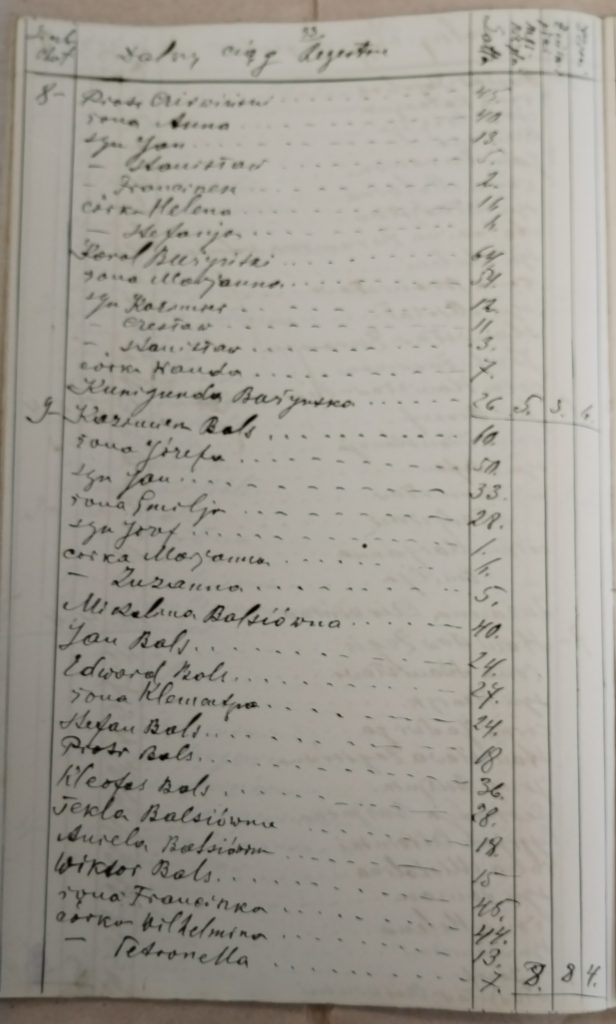 33
Dalszy ciąg Regestru
8- Piotr
żona Anna - - - 40
syn Jan - - - 13.
- Stanisław - - - 5.
- Franciszek - - - 2.
córka Helena - - - 16
- Stefanja - - - 4
Karol Buszyński - - - 64
żona Marjanna - - - 54.
syn Kazimierz - - - 12.
- Czesław - - - 11
- Stanisław - - - 3.
córka Wanda - - - 7.
Kunigunda - - - 26 5. 3. 6.
9 Kazimierz Bals - - - 60.
żona Józefa - - - 50.
syn Jan - - - 33.
żona Emilja - - - 28.
syn Józef - - - 1.
córka Marjanna - - - 4.
- Zuzanna - - - 5.
Mikalina Balsiówna - - - 40.
Jan Bals - - - 24.
Edward Bals - - - 27.
żona Klementyna - - - 24.
Stefan Bals - - - 18
Piotr Bals - - - 36.
Kleofas Bals - - - 28.
Tekla Balsiówna - - - 18.
Aurela Balsiówna - - - 15
Wiktor Bals - - - 45.
żona Franciszka - - - 44.
córka Wilhelmina - - - 13.
- Petronella - - - 7. 8. 8 4.